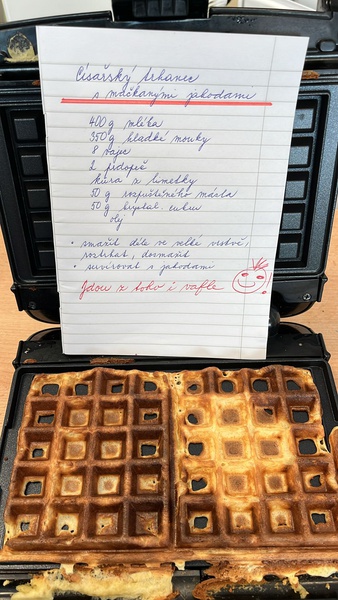 Císařský trhanec
s mačkanými jahodami
400g mléka
350g hladké mouky
8 vajec
2 prdopeč
kůra z limetky
50g rozpuštěného másla
50g krystal. cukru
olej
• smažit dile ve velké vrstvě,
roztrhat, dosmažit
• servírovat s jahodami
Jdou z toho i vafle